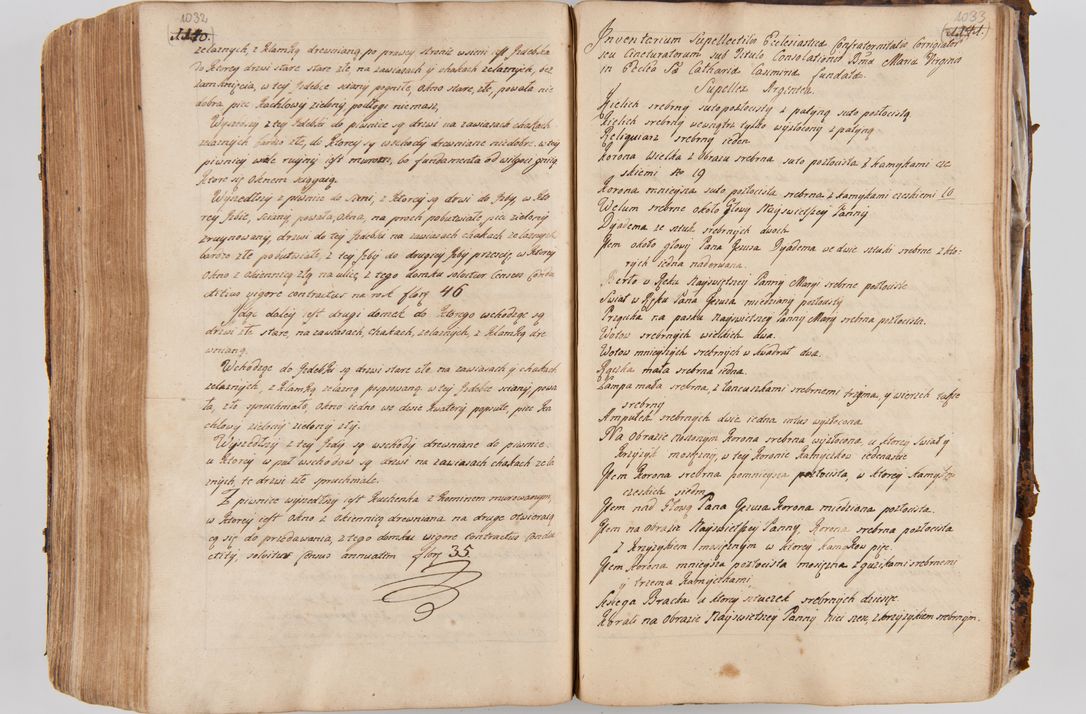 1032
1110.
zelaznych, z klamką drewnianą, po prawey stronie wsieni iest Izdebka
do ktorey drzwi stare stare złe, na zawiasach y chakach zelaznych, bez
zamknięcia, w tey Izdebce sciany pogniłe, okno stare, złe, powała nie
dobra piec kachlowy zielony podłogi niemasz,
Wyszedszy z tey Izdebki do piwnice są drzwi na zawiasach chakach
zelaznych barzo złe, do ktorey są wschody drewniane niedobre, w tey
piwnicy wale ruynij iest murom, bo fundamenta od wilgoci gniią
ktore się oknem sciągaią.
Wyszedszy z piwnice do sieni, z ktorey są drzwi do Izby, w kto
rey Izbie, sciany powała, okna, na proch pobutwiałe, piec zielony
zruynowany, drzwi do tey Izdebki na zawiasach chakach zelaznych
barzo złe pobutwiałe, z tey Izby do drugiey Izby przeiscie, w ktorey
okno z okiennicą złą na ulicę, z tego domku solvitur Census Condu
ctitius vigore contractus na rok flor 46
Idąc daley iest drugi domek do ktorego wchodząc są
drzwi złe stare, na zawiasach, chakach, zelaznych, z klamką dre
wnianą.
Wchodząc do Izdebki są drzwi stare złe na zawiasach y chakach
zelaznych, z klamką zelazną popsowaną w tey Izdebce sciany powa
ła, złe spruchniałe, okno iedno we dwie kwatery popsute, piec ka
chlowy zielony zielony zły.
Wyszedszy z tey Izdy są wschody drewniane do piwnice
u ktorey w puł wschodow są drzwi na zawiasach chakach zela
znych, te drzwi złe spruchniałe.
Z piwnice wyszedszy iest kuchenka z kominem murowanym,
w ktorey iest okno z okiennicą drewniana na druge otwieraią
cą się do przedawania, z tego domku vigore Contractus Condu
ctitij, solvitur Census annuatim flor 35
1033
1111.
Inventarium Supellectilis Ecclesiasticæ Confraternitatis Corrigiator
seu Cincturatorum sub Titulo Consolationis Bmæ Mariæ Virginis
in Ecclia Sæ Catharinæ Casimiriæ fundatæ.
Supellex Argentea.
Kielich srebrny suto pozłocisty z patyną suto pozłocistą
Kielich srebrny wewnątrz tylko wyzłocony z patyną
Reliquiarz srebrny ieden
Korona wielka z obrazu srebrna suto pozłocista z kamykami cze
skiemi No 19
Korona mnieysza suto pozłocista srebrna z kamykami czeskiemi 16
Welum srebrne około Głowy Nayswiętszey Panny
Dyadema ze sztuk srebrnych dwoch
Item około głowy Pana Jezusa Dyadema we dwie sztuki srebrne z kto
rych iedna naderwana.
Berło w Ręku Nayswiętszey Panny Maryi srebrne pozłociste
Swiat w Ręku Pana Jezusa miedziany pozłocisty
Przęczka na pasku Nayswiętszey Panny Mary srebrna pozłocista.
Wotow srebrnych wielkich dwa.
Wotow mnieyszych srebrnych w kwadrat dwa.
Rączka mała srebrna iedna.
Lampa mała srebrna, z łancuszkami srebrnemi trzema, y wierzch także
srebrny
Ampułek srebrnych dwie iedna intus wyzłocona
Na obrazie noszonym korona srebrna wyzłocona, u ktorey Swiat y
krzyzyk mosiężny, w tey Koronie kamyczkow iedenascie
Item Korona srebrna pomnieysza pozłocista, w ktorey kamyków
czeskich siedm
Item nad Głową Pana Jezusa Korona miedziana pozłocista.
Item na obrazie Nayswiętszey Panny, Korona srebrna pozłocista
z krzyzykiem mosięznym w ktorey kamykow pięc.
Item Korona mnieysza pozłocista mosięzna z guzikami srebrnemi
y trzema kamyczkami
Xsięga Bracka u ktorey sztuczek srebrnych dziesięc
Korali na obrazie Nayswiętszey Panny nici szesc, z krzyzykiem srebrnym.